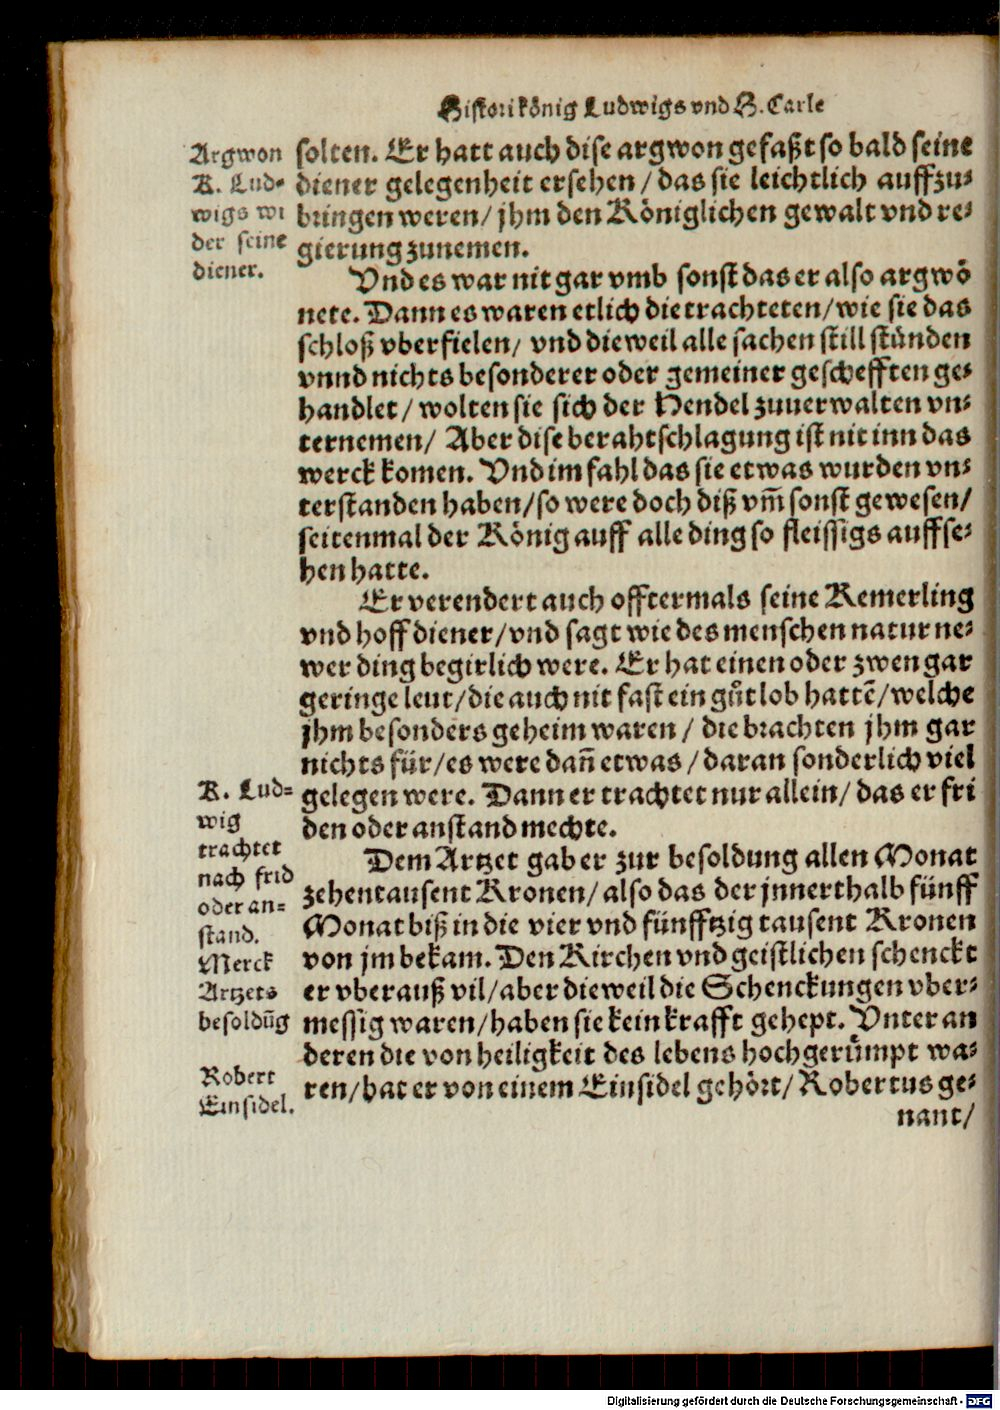 Histori könig Ludwigs vnd H. Carle
Argwon
K. Lud-
wigs wi
der seine
diener.
solten. Er hatt auch dise argwon gefaßt so bald seine
diener gelegenheit ersehen / das sie leichtlich auffzu-
bringen weren / jhm den Königlichen gewalt vnd re-
gierung zunemen.
Vnd es war nit gar vmb sonst das er also argwö
nete. Dann es waren etlich die trachteten / wie sie das
schloß vberfielen / vnd dieweil alle sachen still stünden
vnnd nichts besonderer oder gemeiner geschefften ge-
handlet / wolten sie sich der Hendel zuuerwalten vn-
ternemen / Aber dise berahtschlagung ist nit inn das
werck komen. Vnd im fahl das sie etwas wurden vn-
terstanden haben / so were doch diß vm̃ sonst gewesen /
seitenmal der König auff alle ding so fleissigs auffse-
hen hatte.
Er verendert auch offtermals seine Kemerling
vnd hoff diener / vnd sagt wie des menschen natur ne-
wer ding begirlich were. Er hat einen oder zwen gar
geringe leut / die auch nit fast ein gůt lob hattẽ / welche
jhm besonders geheim waren / die brachten jhm gar
nichts für / es were dañ etwas / daran sonderlich viel
gelegen were. Dann er trachtet nur allein / das er fri
den oder anstand mechte.
K. Lud-
wig
trachtet
nach frid
oder an-
stand.
Merck
Artzets
besoldũg
Dem Artzet gab er zur besoldung allen Monat
zehentausent Kronen / also das der jnnerthalb fünff
Monat biß in die vier vnd fünfftzig tausent Kronen
von jm bekam. Den Kirchen vnd geistlichen schenckt
er vberauß vil / aber dieweil die Schenckungen vber-
messig waren / haben sie kein krafft gehept. Vnter an
deren die von heiligkeit des lebens hochgerůmpt wa-
ren / hat er von einem Einsidel gehört / Robertus ge-
Robert
Einsidel.
nant /
Digitalisierung gefördert durch die Deutsche Forschungsgemeinschaft - DFG